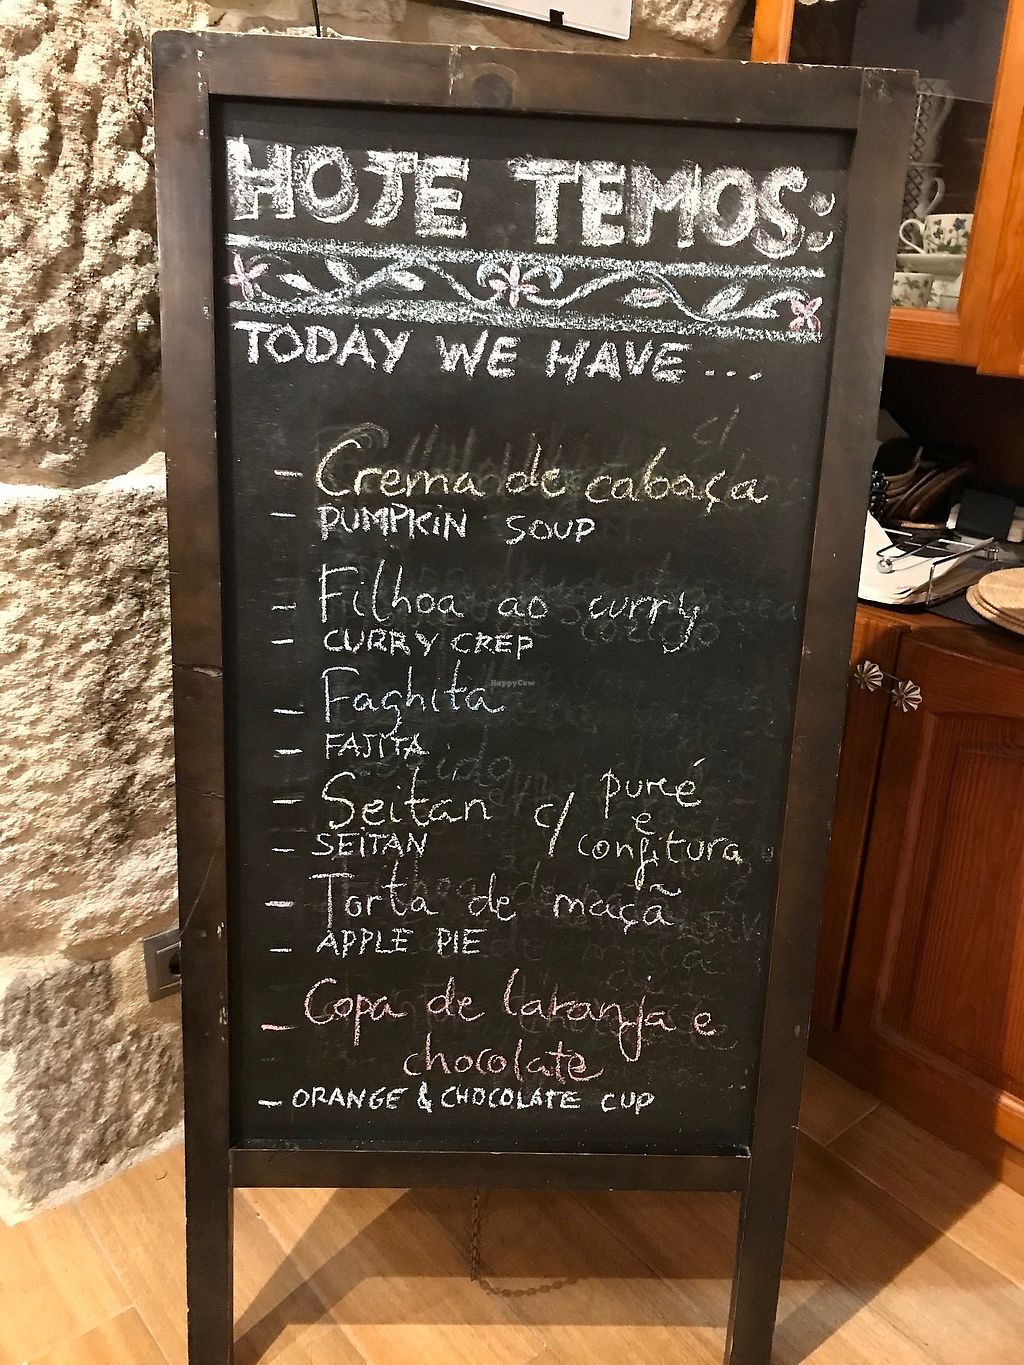 HOJE TEMOS:
TODAY WE HAVE...
- Crema de cabaça
- PUMPKIN SOUP
- Filhoa ao curry
- CURRY CREP
- Faghita
- FAJITA
- Seitan c/ puré e confitura
- SEITAN
- Torta de maçã
- APPLE PIE
- Copa de laranja e
chocolate
- ORANGE & CHOCOLATE CUP
HappyCow